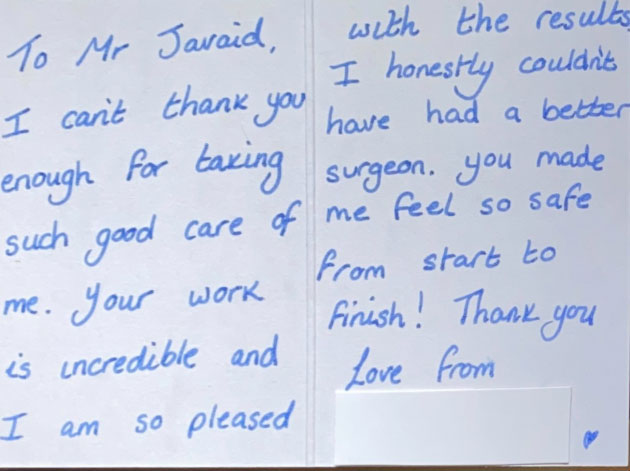 To Mr Javaid,
I can't thank you
enough for taking
such good care of
me. Your work
is incredible and
I am so pleased
with the results
I honestly couldn't
have had a better
surgeon. you made
me feel so safe
from start to
finish! Thank you
Love from